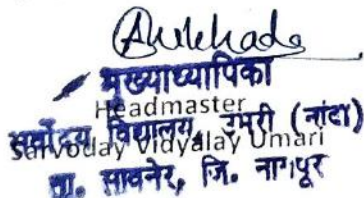 मुख्याध्यापिका
Headmaster
सर्वोदय विद्यालय, उमरी (नांदा)
Sarvoday Vidyalay Umari
ता. सावनेर, जि. नागपूर